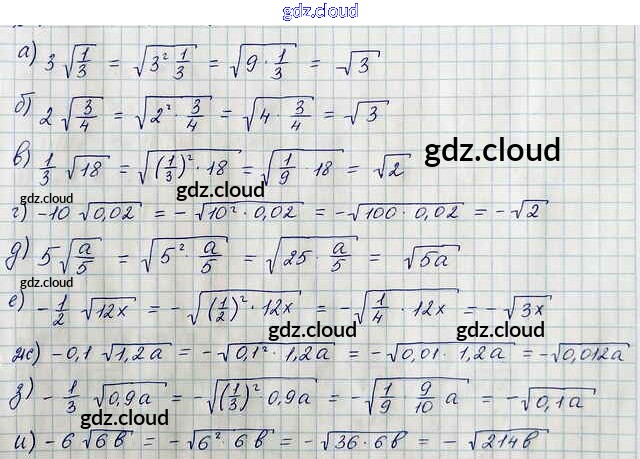 gdz.cloud
а) 3 √(1/3) = √(3² · 1/3) = √(9 · 1/3) = √3
б) 2 √(3/4) = √(2² · 3/4) = √(4 · 3/4) = √3
в) 1/3 √18 = √((1/3)² · 18) = √(1/9 · 18) = √2
gdz.cloud
gdz.cloud
gdz.cloud
г) -10 √0,02 = -√(10² · 0,02) = -√(100 · 0,02) = -√2
д) 5 √(a/5) = √(5² · a/5) = √(25 · a/5) = √(5a)
gdz.cloud
е) -1/2 √(12x) = -√((1/2)² · 12x) = -√(1/4 · 12x) = -√(3x)
gdz.cloud
gdz.cloud
ж) -0,1 √(1,2a) = -√(0,1² · 1,2a) = -√(0,01 · 1,2a) = -√(0,012a)
з) -1/3 √(0,9a) = -√((1/3)² 0,9a) = -√(1/9 · 9/10 a) = -√(0,1a)
gdz.cloud
gdz.cloud
и) -6 √(6b) = -√(6² · 6b) = -√(36 · 6b) = -√(214b)